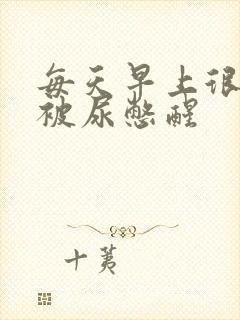 每天早上很
被尿憋醒
十荑